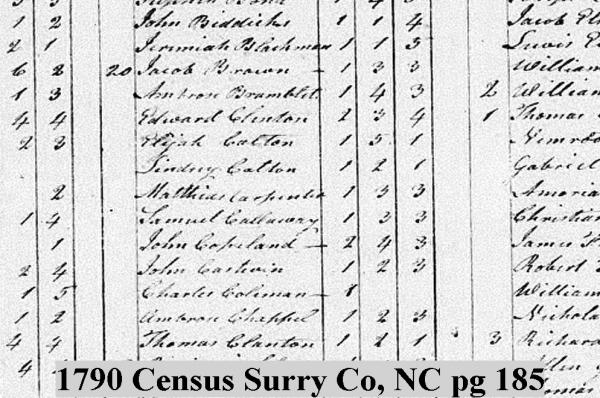 1 2 John Beddichs 1 1 4 Jacob
2 1 Jeremiah Blackman 1 1 5 Lewis
6 2 20 Jacob Brown 1 3 3 William
1 3 Ambron Bramblet 1 4 3 2 William
4 4 Edward Clinton 2 3 4 1 Thomas
2 3 Elijah Calton 1 5 1 Nimrod
Lindsy Calton 1 2 1 Gabriel
2 Matthias Carpenter 1 3 3
1 4 Samuel Callaway 1 3 3 Christian
1 John Copeland 2 4 3 James
2 4 John Castwin 1 2 3 Robert
1 5 Charles Coliman 1 William
1 2 Ambron Chappel 1 2 3 Nichola
4 4 Thomas Clanton 1 2 1 3 Richard
4
1790 Census Surry Co, NC pg 185